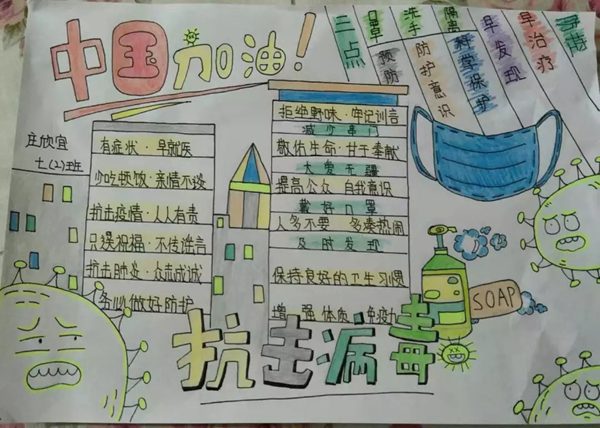 中国加油!
口罩
预防
洗手
防护意识
隔离
科学保护
早发现
早治疗
庄欣宜
七(2)班
有症状·早就医
少吃顿饭·亲情不淡
抗击疫情·人人有责
只送祝福·不传谣言
抗击肺炎·众志成诚
务必做好防护
拒绝野味·牢记训言
减少串门
敬佑生命·甘于奉献
大爱无疆
提高公众 自我意识
戴好口罩
人多不要 多凑热闹
及时发现
保持良好的卫生习惯
增强体质 免疫
SOAP
抗击病毒